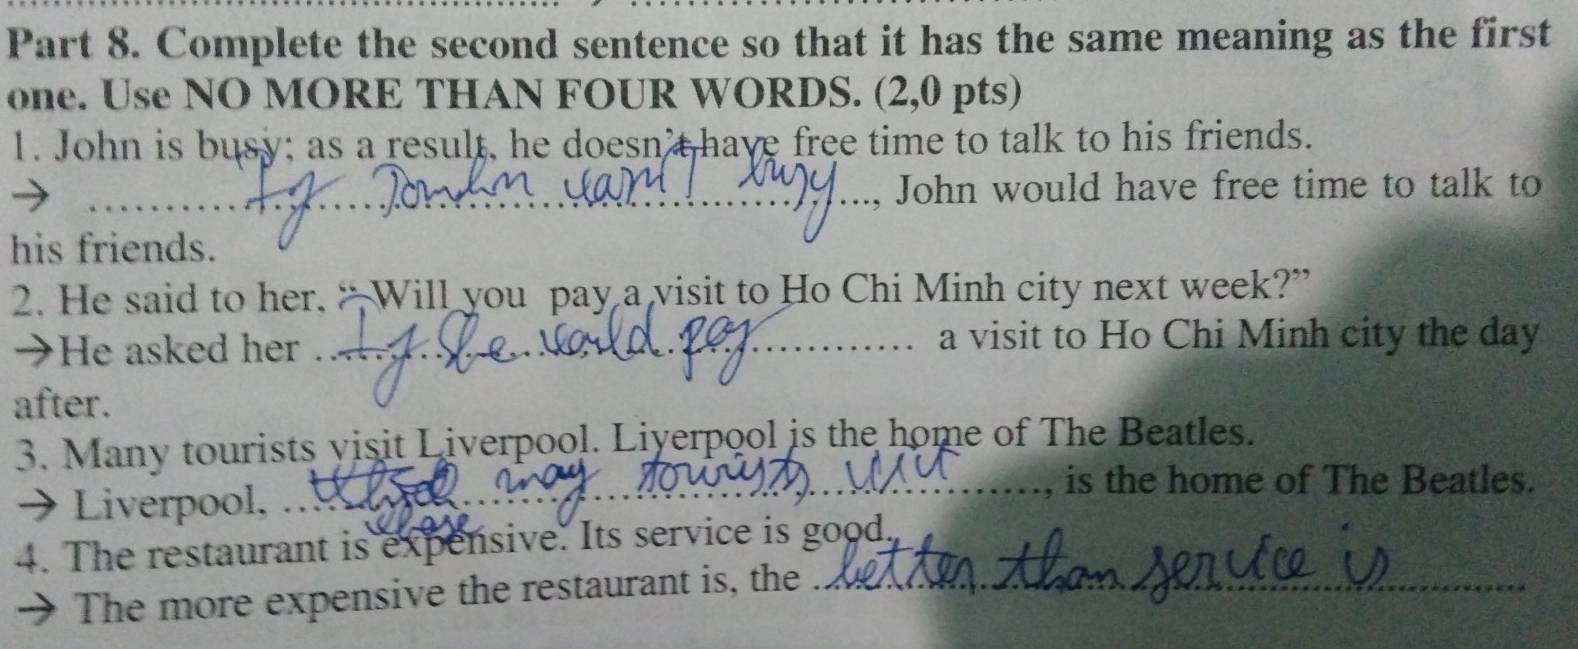 Part 8. Complete the second sentence so that it has the same meaning as the first
one. Use NO MORE THAN FOUR WORDS. (2,0 pts)
1. John is busy; as a result, he doesn't have free time to talk to his friends.
→ .......... If ..... busy ..., John would have free time to talk to
his friends.
2. He said to her, “Will you pay a visit to Ho Chi Minh city next week?”
→ He asked her ... If she would pay ............ a visit to Ho Chi Minh city the day
after.
3. Many tourists visit Liverpool. Liverpool is the home of The Beatles.
→ Liverpool, ... may tourists visit ......, is the home of The Beatles.
4. The restaurant is expensive. Its service is good.
→ The more expensive the restaurant is, the ... better than service is ..........